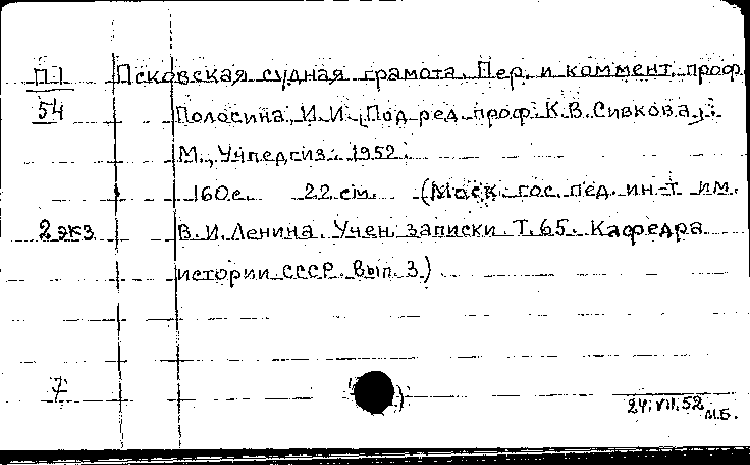 П1 Псковская судная грамота. Пер. и коммент. проф.
54 Полосина, И.И. Под ред. проф. К.В. Сивкова,
М., Учпедгиз. 1952.
160 с. 22 см. (Моск. гос. пед. ин-т им.
2 экз В.И. Ленина. Учен. записки. Т. 65. Кафедра
истории СССР. Вып. 3.)
7
24.VII.52 М.Б.